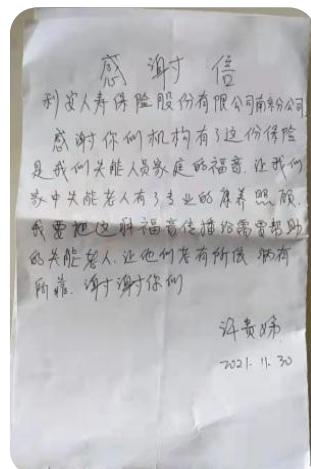 感谢信
利安人寿保险股份有限公司南京分公司
感谢你们机构有了这份保险
是我们失能人员家庭的福音.让我们
家中失能老人有了专业的康养照顾.
我要把这种福音传播给需要帮助
的失能老人.让他们老有所依 病有
所靠.谢谢你们
许贵娣
2021.11.30